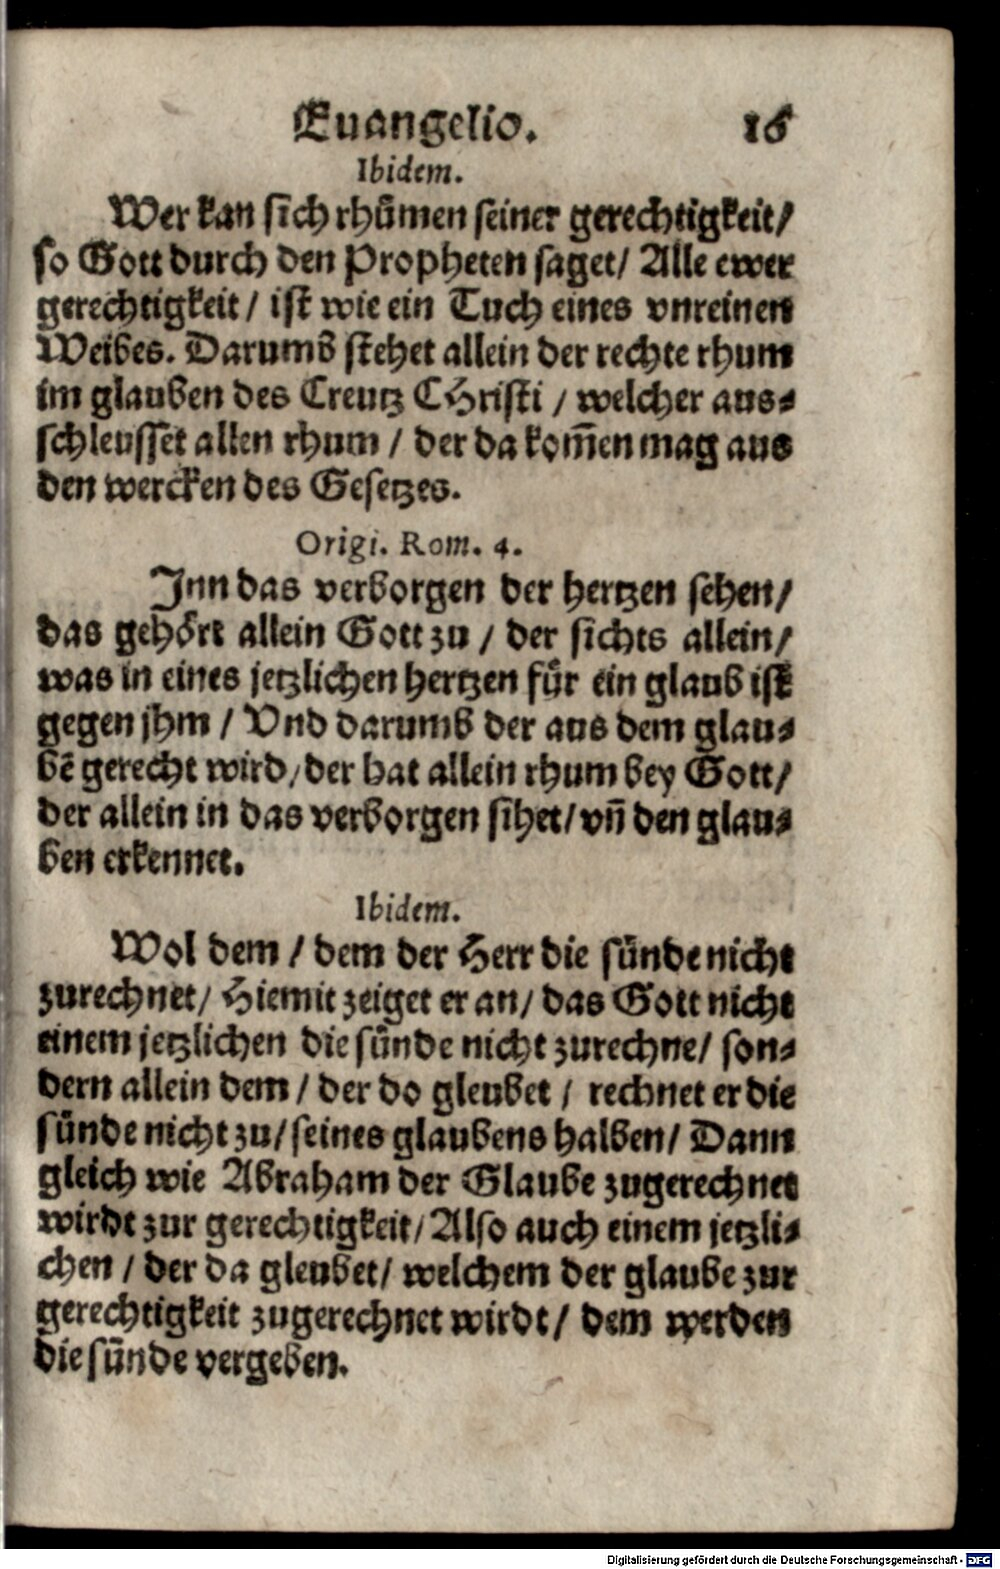 Euangelio. 16
Ibidem.
Wer kan sich rhůmen seiner gerechtigkeit/
so Gott durch den Propheten saget/ Alle ewer
gerechtigkeit/ ist wie ein Tuch eines vnreinen
Weibes. Darumb stehet allein der rechte rhum
im glauben des Creutz CHristi / welcher aus⸗
schleusset allen rhum / der da kom̃en mag aus
den wercken des Gesetzes.
Origi. Rom. 4.
Inn das verborgen der hertzen sehen/
das gehört allein Gott zu / der sichts allein/
was in eines jetzlichen hertzen für ein glaub ist
gegen jhm / Vnd darumb der aus dem glau⸗
bẽ gerecht wird/ der hat allein rhum bey Gott/
der allein in das verborgen sihet/ vñ den glau⸗
ben erkennet.
Ibidem.
Wol dem / dem der Herr die sünde nicht
zurechnet/ Hiemit zeiget er an/ das Gott nicht
einem jetzlichen die sünde nicht zurechne/ son⸗
dern allein dem / der do gleubet / rechnet er die
sünde nicht zu/ seines glaubens halben/ Dann
gleich wie Abraham der Glaube zugerechnet
wirdt zur gerechtigkeit/ Also auch einem jetzli⸗
chen / der da gleubet/ welchem der glaube zur
gerechtigkeit zugerechnet wirdt/ dem werden
die sünde vergeben.
Digitalisierung gefördert durch die Deutsche Forschungsgemeinschaft - DFG